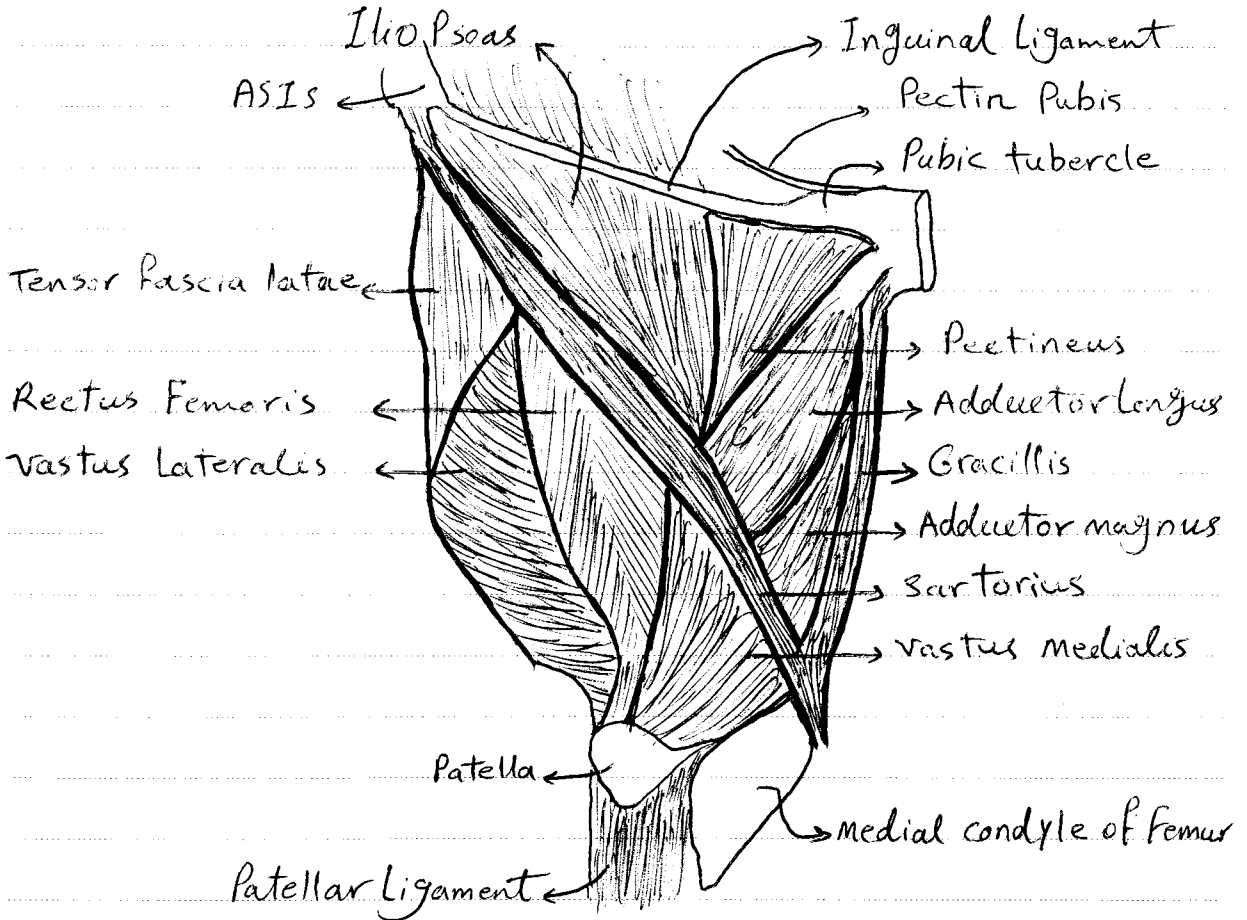 Ilio Psoas
Inguinal Ligament
ASIs
Pectin Pubis
Pubic tubercle
Tensor fascia latae
Pectineus
Rectus Femoris
Adductor Longus
Vastus Lateralis
Gracillis
Adductor magnus
Sartorius
Vastus Medialis
Patella
Medial condyle of Femur
Patellar Ligament